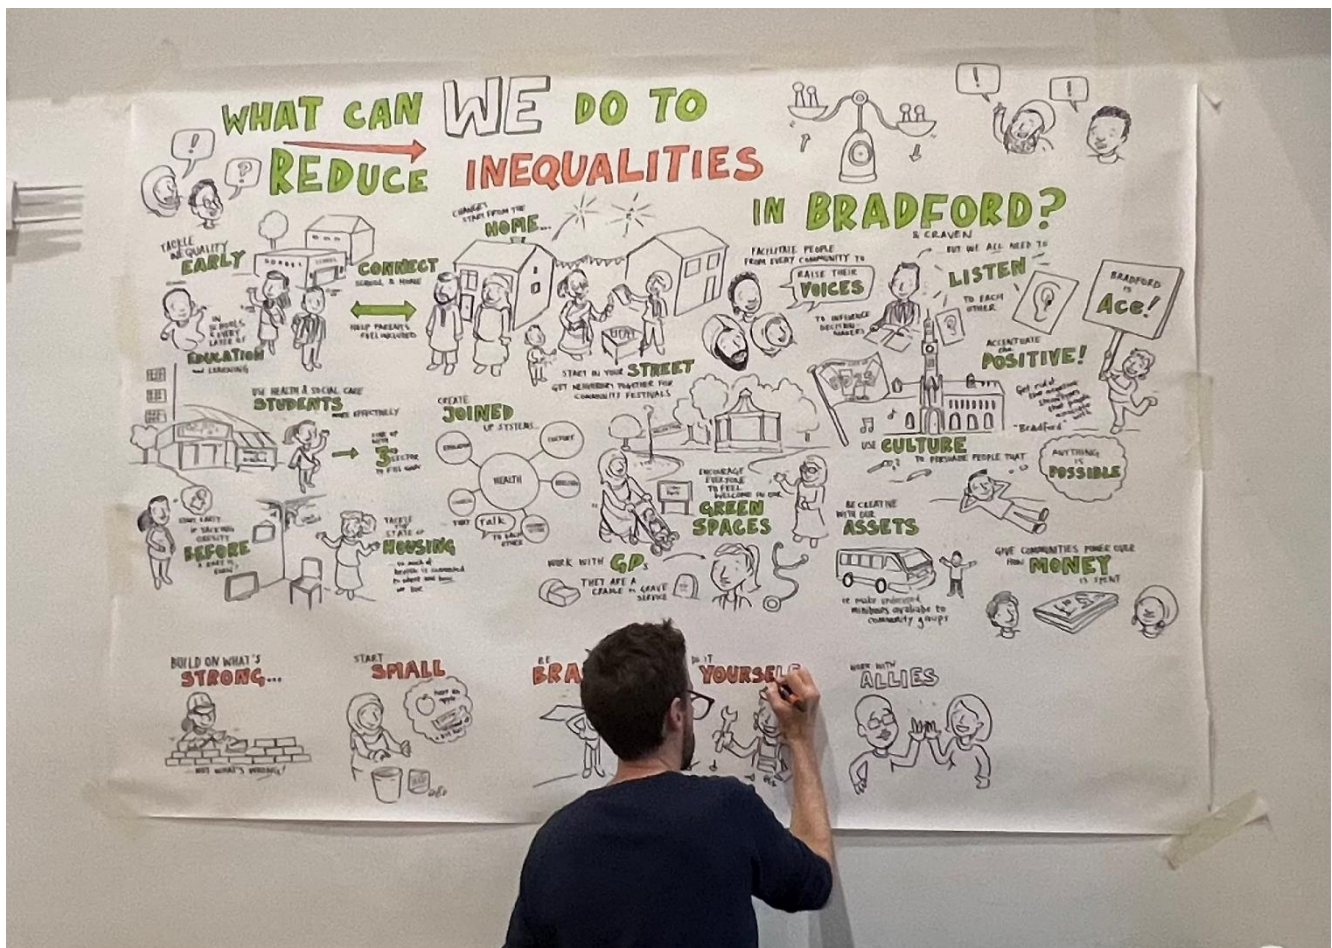 WHAT CAN WE DO TO
REDUCE INEQUALITIES
IN BRADFORD?
& CRAVEN
!
?
!
!
TACKLE
INEQUALITY
EARLY
IN
SCHOOLS
EVERY
LAYER OF
EDUCATION
and LEARNING
SCHOOL
CONNECT
SCHOOL & HOME
HELP PARENTS
FEEL INCLUDED
CHANGES
START FROM THE
HOME...
START IN YOUR STREET
GET NEIGHBOURS TOGETHER FOR
COMMUNITY FESTIVALS
FACILITATE PEOPLE
FROM EVERY COMMUNITY TO
RAISE THEIR
VOICES
TO INFLUENCE
DECISION
MAKERS
BUT WE ALL NEED TO
LISTEN
TO EACH
OTHER
BRADFORD
IS
Ace!
ACCENTUATE
the
POSITIVE!
Get rid of
the negative
that people
associate
with
"Bradford"
USE HEALTH & SOCIAL CARE
STUDENTS
MORE EFFECTIVELY
LINK UP
WITH
3RD
SECTOR
TO FILL GAPS
CREATE
JOINED
UP SYSTEMS...
EDUCATION
CULTURE
HEALTH
HOUSING
THAT Talk
TO EACH
OTHER
ENCOURAGE
EVERYONE
TO FEEL
WELCOME IN OUR
GREEN
SPACES
USE CULTURE
TO PERSUADE PEOPLE THAT
ANYTHING
IS
POSSIBLE
START EARLY
IN TACKLING
OBESITY
BEFORE
A BABY IS
BORN!
TACKLE
THE
STATE OF
HOUSING
... so much of
health is connected
to where and how
we live
WORK WITH GPs
THEY ARE A
CRADLE to GRAVE
SERVICE
BE CREATIVE
WITH OUR
ASSETS
ie make underused
minibuses available to
community groups
GIVE COMMUNITIES POWER OVER
HOW MONEY
IS SPENT
BUILD ON WHAT'S
STRONG...
...NOT WHAT'S WRONG!
START
SMALL
BE
BRA
DO IT
YOURSEL
WORK WITH
ALLIES